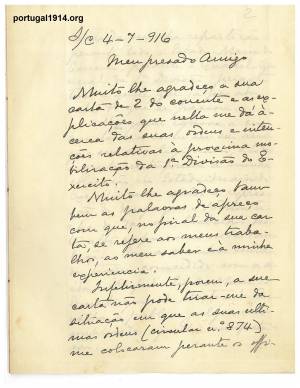 portugal1914.org
2
S/C 4-7-916
Meu presado Amigo
Muito lhe agradeço a sua
carta de 2 do corrente e as ex-
plicações que nella me dá á-
cerca das suas ordens e inten-
ções relativas á proxima mo-
bilização da 1ª Divisão do E-
xercito.
Muito lhe agradeço tam-
bem as palavras de apreço
com que, no final da sua car-
ta, se refere aos meus traba-
lhos, ao meu saber e á minha
experiencia.
Infelizmente, porem, a sua
carta não pode tirar-me da
situação em que as suas ulti-
mas ordens (circular n.º 874)
me colocaram perante os offi-